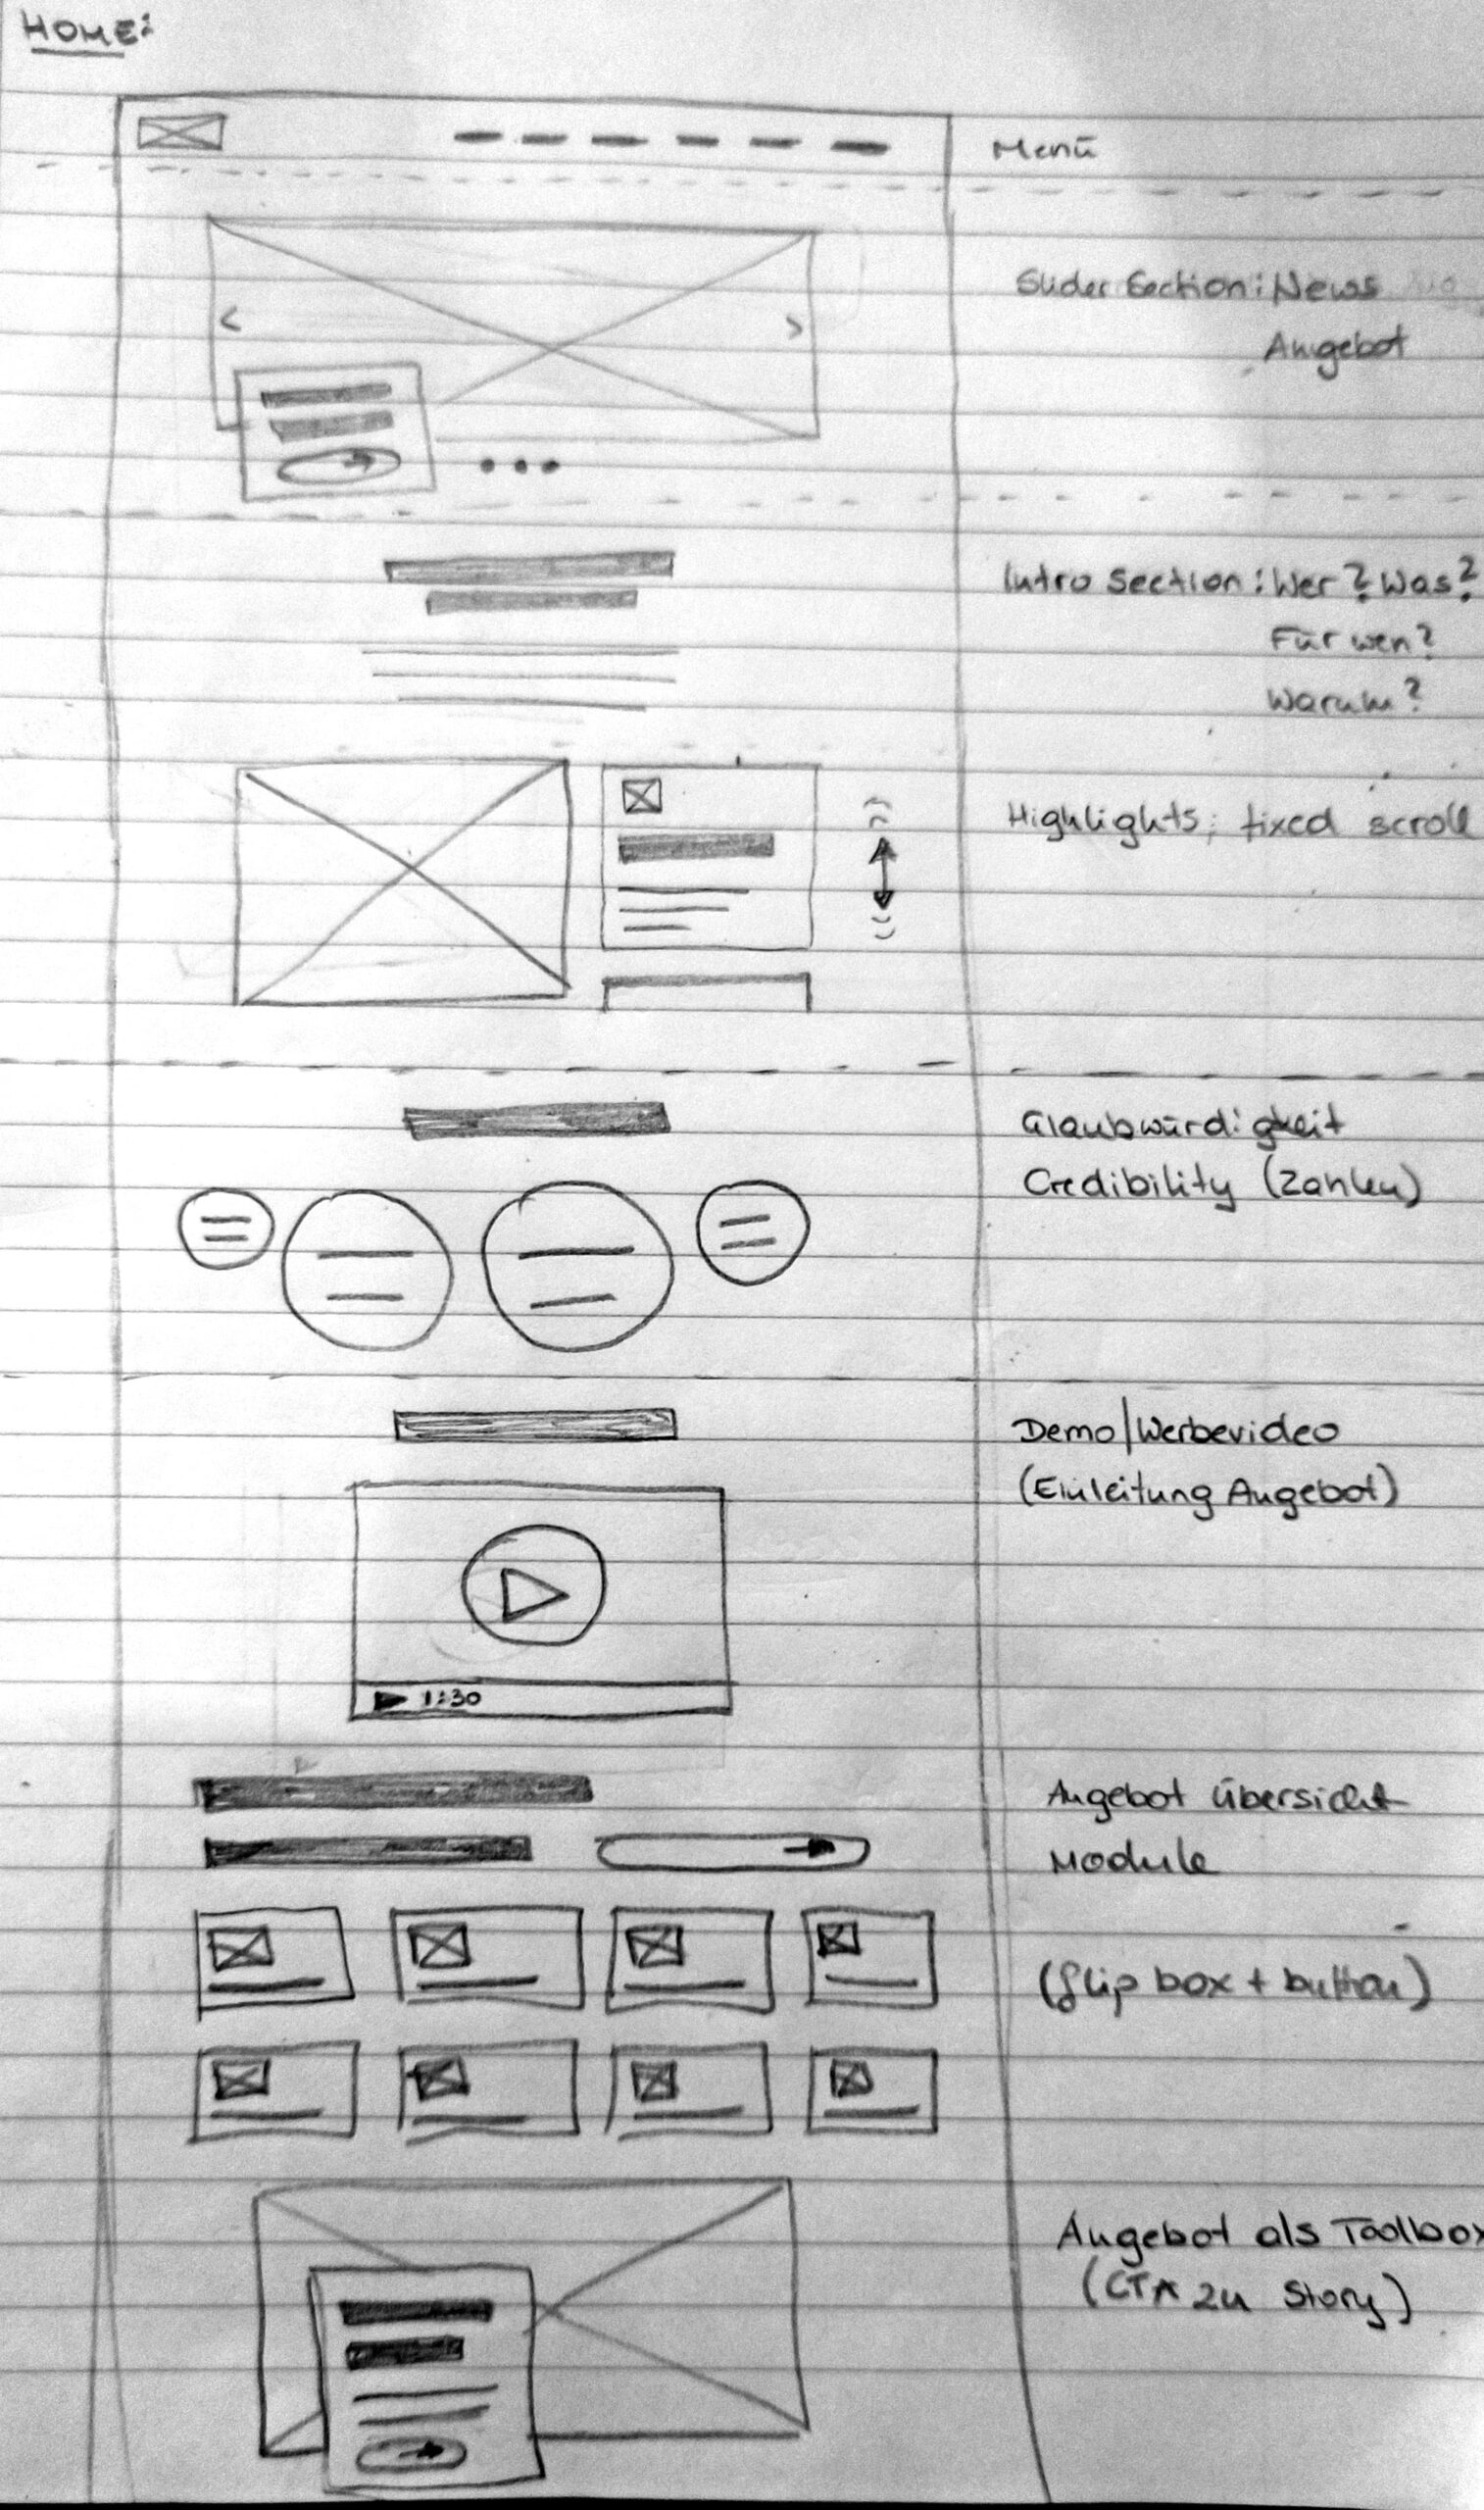 HOME:
Menü
Slider Section: News
Angebot
Intro Section: Wer? Was?
Für wen?
Warum?
Highlights; fixed scroll
Glaubwürdigkeit
Credibility (Zahlen)
Demo/Werbevideo
(Einleitung Angebot)
1:30
Angebot Übersicht
Module
(flip box + button)
Angebot als Toolbox
(CTA zu Story)